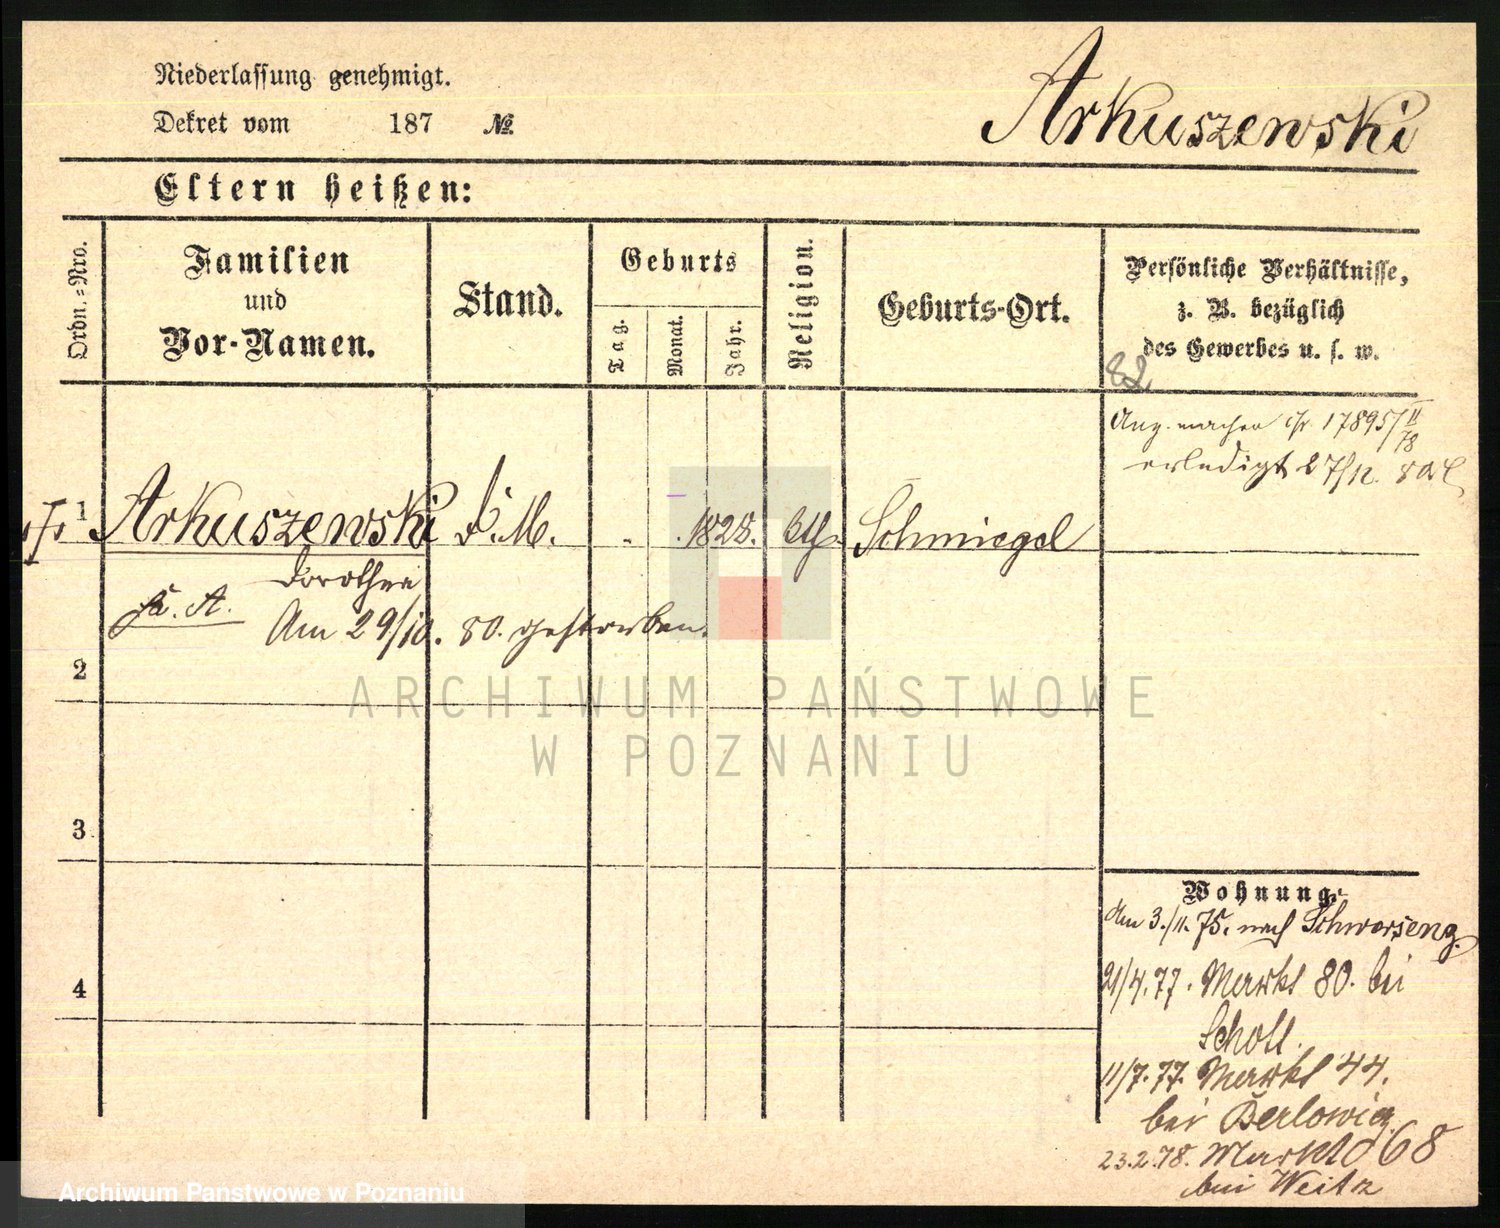 Niederlassung genehmigt.
Dekret vom 187 №
Arkuszewski
Eltern heißen:
Ordn.-Nro.
Familien
und
Vor-Namen.
Stand.
Geburts
Tag.
Monat.
Jahr.
Religion.
Geburts-Ort.
Persönliche Verhältnisse,
z. B. bezüglich
des Gewerbes u. s. w.
82
17895/II
78
erledigt 27/12. 80
1 Arkuszewski D. M. 1828. Schmiegel
Dorothea
Am 29/10. 80. gestorben.
2
3
4
Wohnung.
Am 3./11. 75. nach Schwersenz
21/4. 77. Markt 80. bei
Scholl.
11/7. 77. Markt 44.
bei Berlowicz
23.2.78. Markt 68
bei Weitz
ARCHIWUM PAŃSTWOWE
W POZNANIU
Archiwum Państwowe w Poznaniu